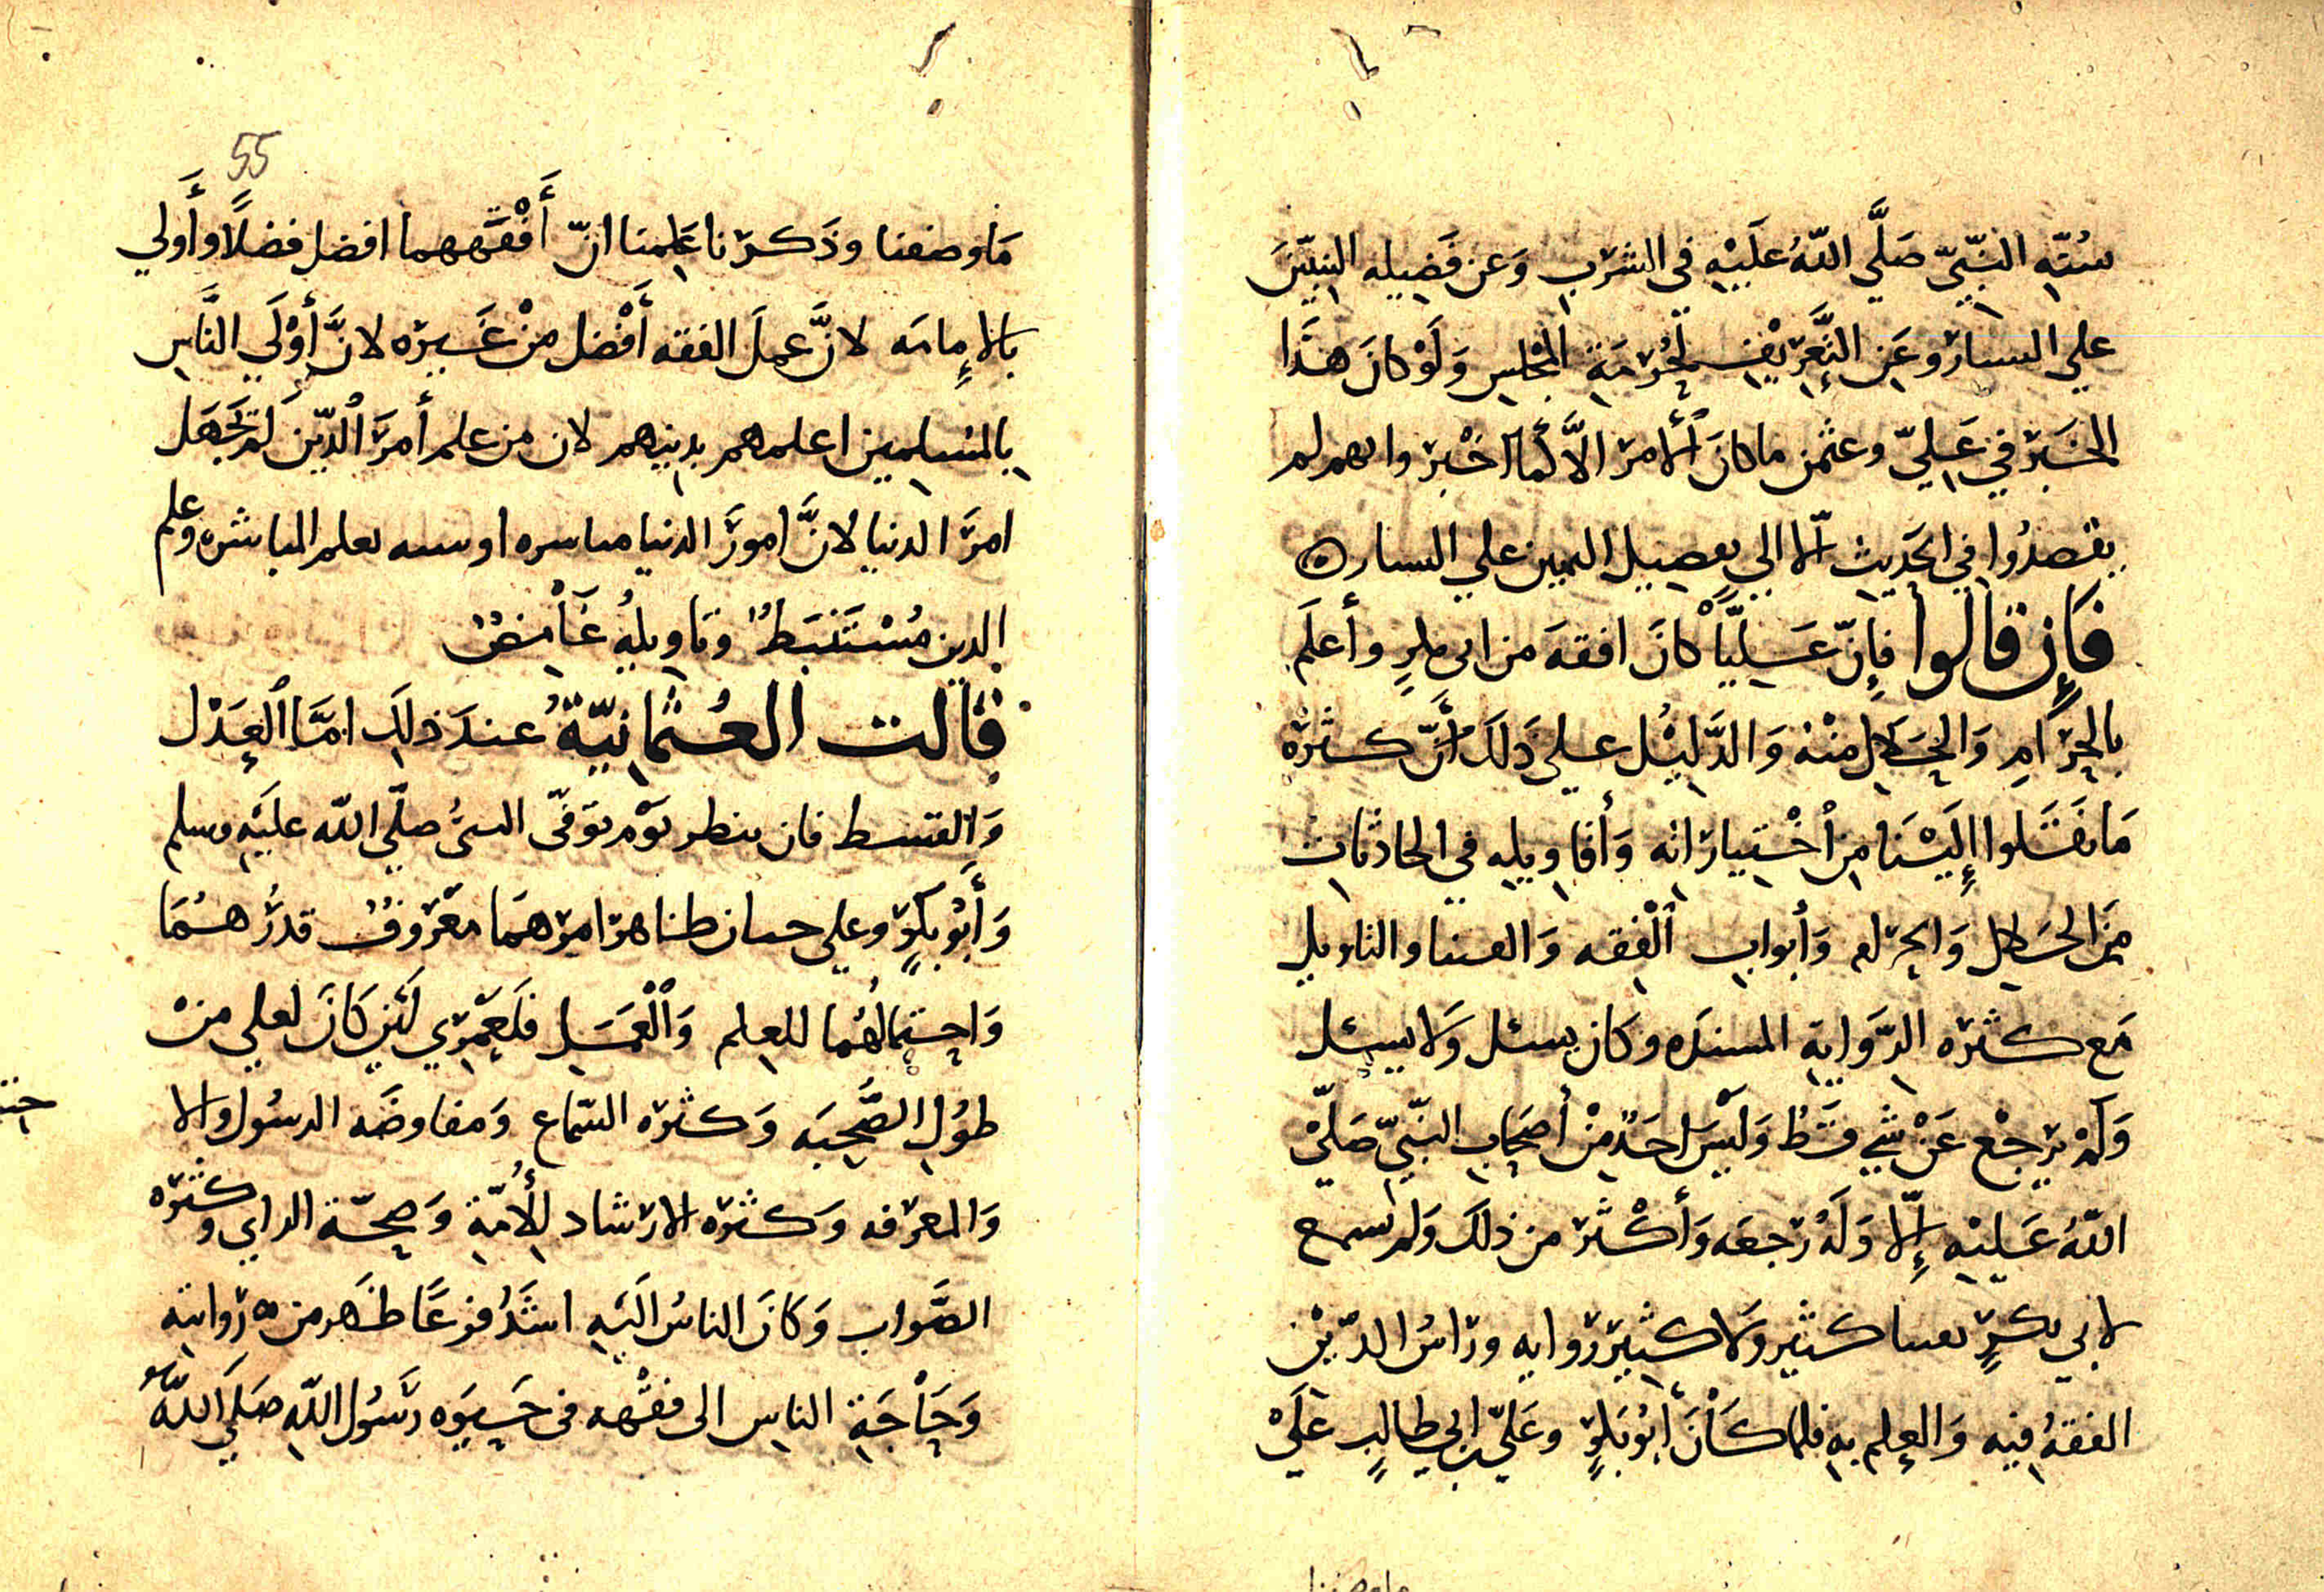 سُنّةِ النَّبيّ صَلَّي اللّهُ عَلَيْهِ في الشرب وَعَن فَضيله اليمين
علي اليسار وعَن التَّعريف لحُرْمَةِ المجلس وَلَوْ كانَ هذا
الخَبَر في عَليّ وعثمن ما كانَ الأمر الاَّ كما اخبر وانهم لم
يقصدُوا في الحَديث الّا الي تفضيل اليمين علي اليسار ۞
فَإِن قالوا فإِنّ عَلِيّاً كانَ افقهَ من ابي بكرٍ وأعلَم
بالحَرَامِ وَالحَلالِ مِنْه وَالدَّليْل علي ذلكَ أنَّ كثرَه
مَا نَقَلوا إِلَيْنا مِن اخْتياراته وَأقاويله في الحادثات
مِنَ الحَلال وَالحرام وَأبواب الفِقه وَالفتيا والتاويل
مَع كثرَه الرّوَاية المسنده وكان يسئل وَلا يسئل
وَلَمْ يَرجْع عَنْ شي قَطْ وَلَيْسَ احَدٌ مِنْ أصحاب النّبيّ صَلّيْ
اللّهُ عَليْه إلّا وَلَهُ رَجعَه وَأكْثَر من ذلكَ وَلم نسمع
لابي بكرٍ بفتيا كثير وَلا كثير رَوايه ورَاسُ الدّيْن
الفقهُ فيه وَالعِلم بِه فلما كَانَ أَبُو بَكرٍ وعَليّ بن ابي طالبٍ عَلَيْ
55
مَا وصفنا وذَكَرنا عَلِمنا انّ أَفْقَهَهما افضل فضلاً وأَولي
بالإِمامَه لانَّ عملَ الفقه أَفْضل مِنْ غَيره لانَّ أَوْلَي النَّاسِ
بالمُسلِمين اعلمهم بدينهم لان من علم أمرَ الدّين لَمْ يَجهَل
امرَ الدنيا لانَّ امورَ الدنيا مباشره او شبيه بعلم المباشره وعلم
الدين مُسْتَنبَطٌ وتاويلُه غَامِضٌ
قالت العُثمانيّةُ عندَ ذلِكَ امَّا العَدْل
وَالقسط فان ينظر يَوْم تُوَفّى النبيُّ صلّي اللّه عليَه وسلم
وَأَبُو بَكرٍ وعلي حيان ظاهر امرهمَا مَعْروفٌ قدرُهُمَا
وَاحتمالُهُما للعِلم وَالْعَمَل فلَعَمْري لَئِن كَانَ لعلي مِنْ
طُولِ الصُّحبَه وَكثره السّماع وَمفاوضَه الرسُول وَالا
وَالمعرفه وَكثره الارشاد لِلأُمّةِ وَصِحّة الراي وكثره
الصَّواب وَكانَ الناسُ الَيْهِ اشَدُ فزعًا ظَهر من ه رَوايته
وَحَاجَةِ الناس الى فقْهه فى حَيوَه رَسُول اللّهِ صَلَي اللّهُ